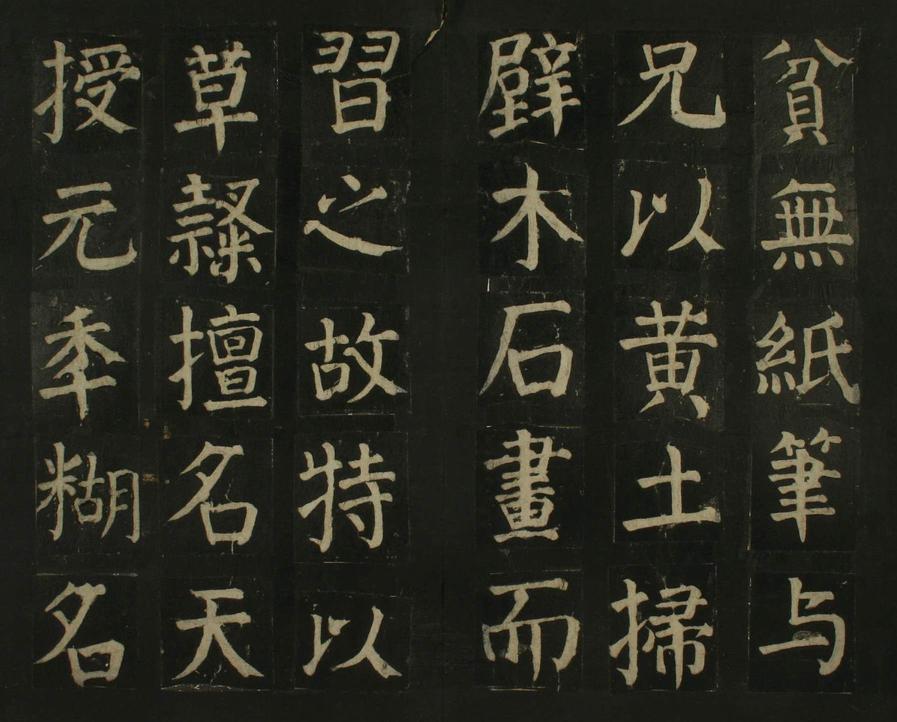 貧無紙筆与
兄以黄土掃
壁木石畫而
習之故特以
草隸擅名天
授元年糊名